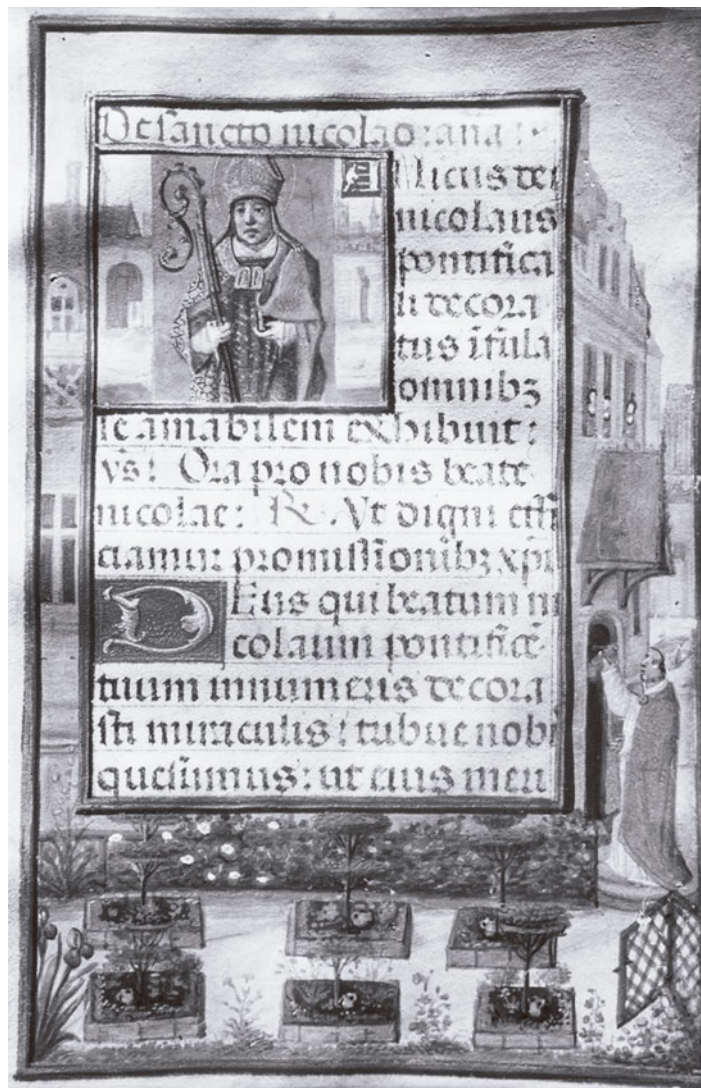 De sancto nicolao: ana:
Amicus dei
nicolaus
pontifica
li decora
tus īfula
omnibꝫ
se amabilem exhibuit:
vs: Ora pro nobis beate
nicolae: R. Vt digni effi
ciamur promissionibꝫ xpi
Deus qui beatum ni
colaum pontificē
tuum innumeris decora
sti miraculis: tribue nobi
quesumus: ut eius meri